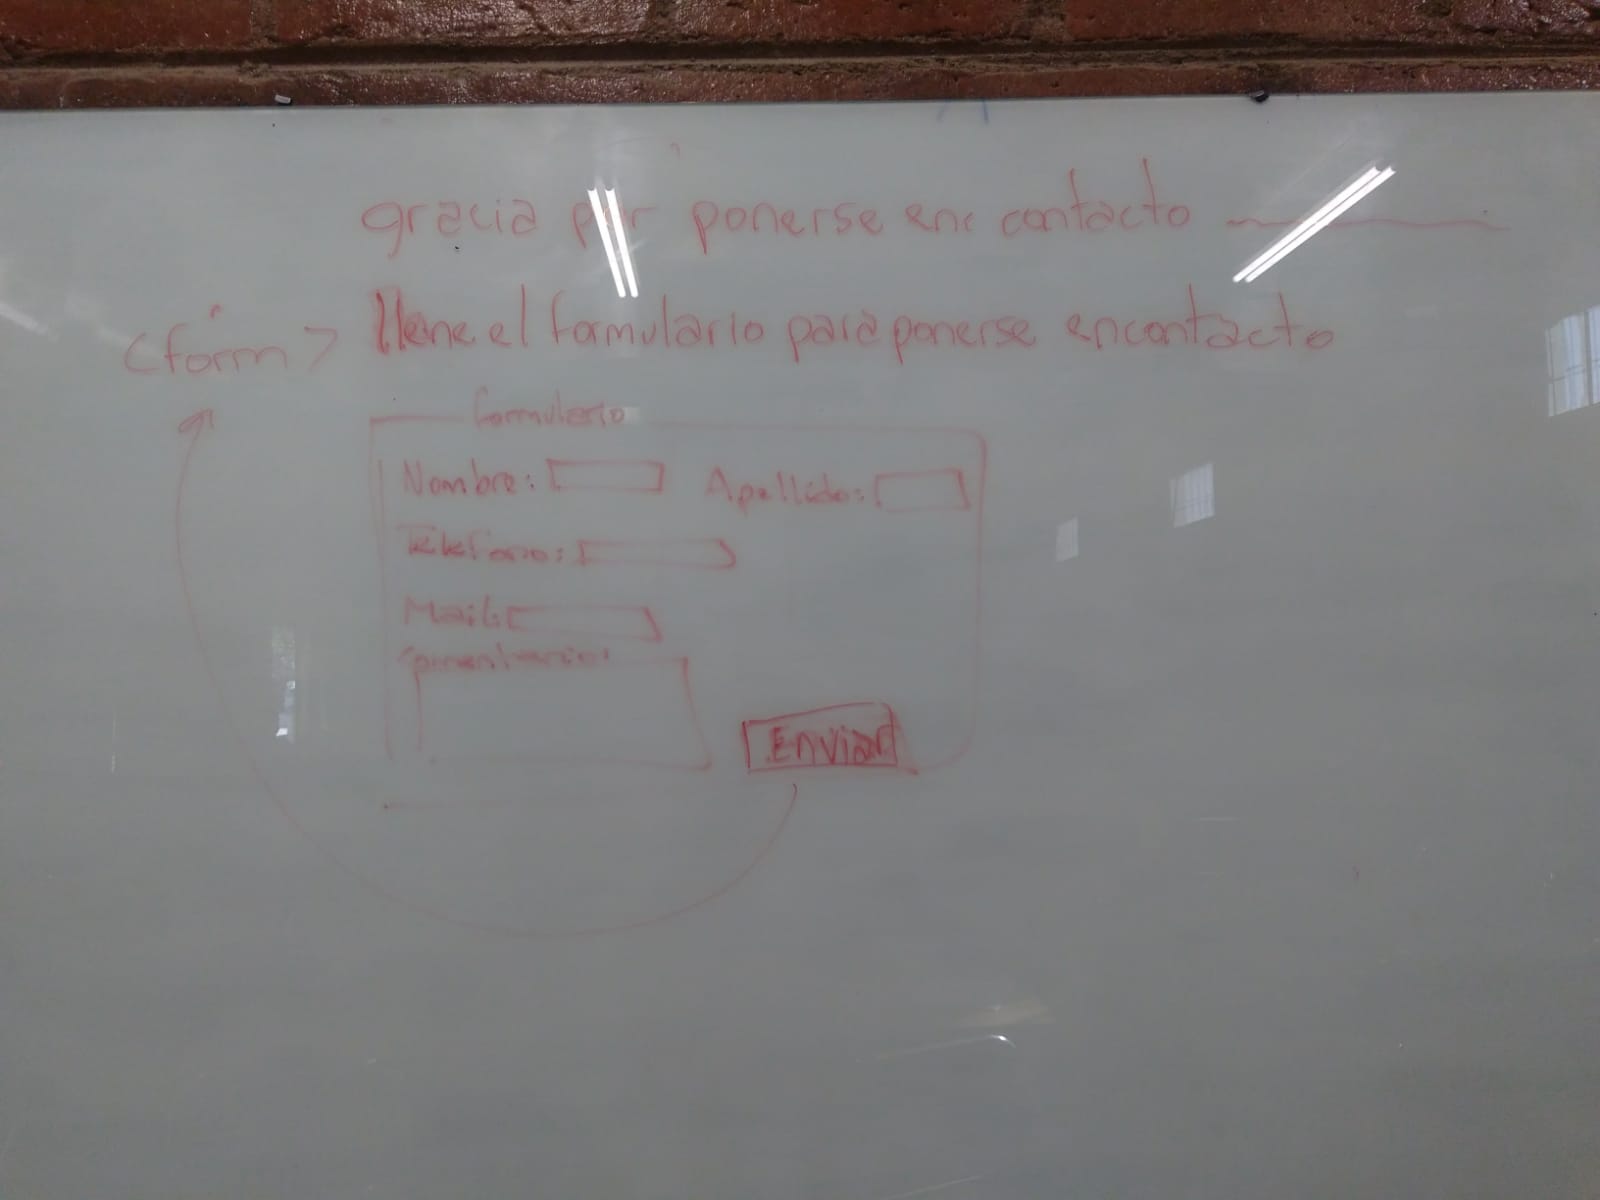 gracia por ponerse enc contacto
<form> llene el formulario para ponerse encontacto
formulario
Nombre: Apellido:
Telefono:
Mail:
Comentario:
Enviar